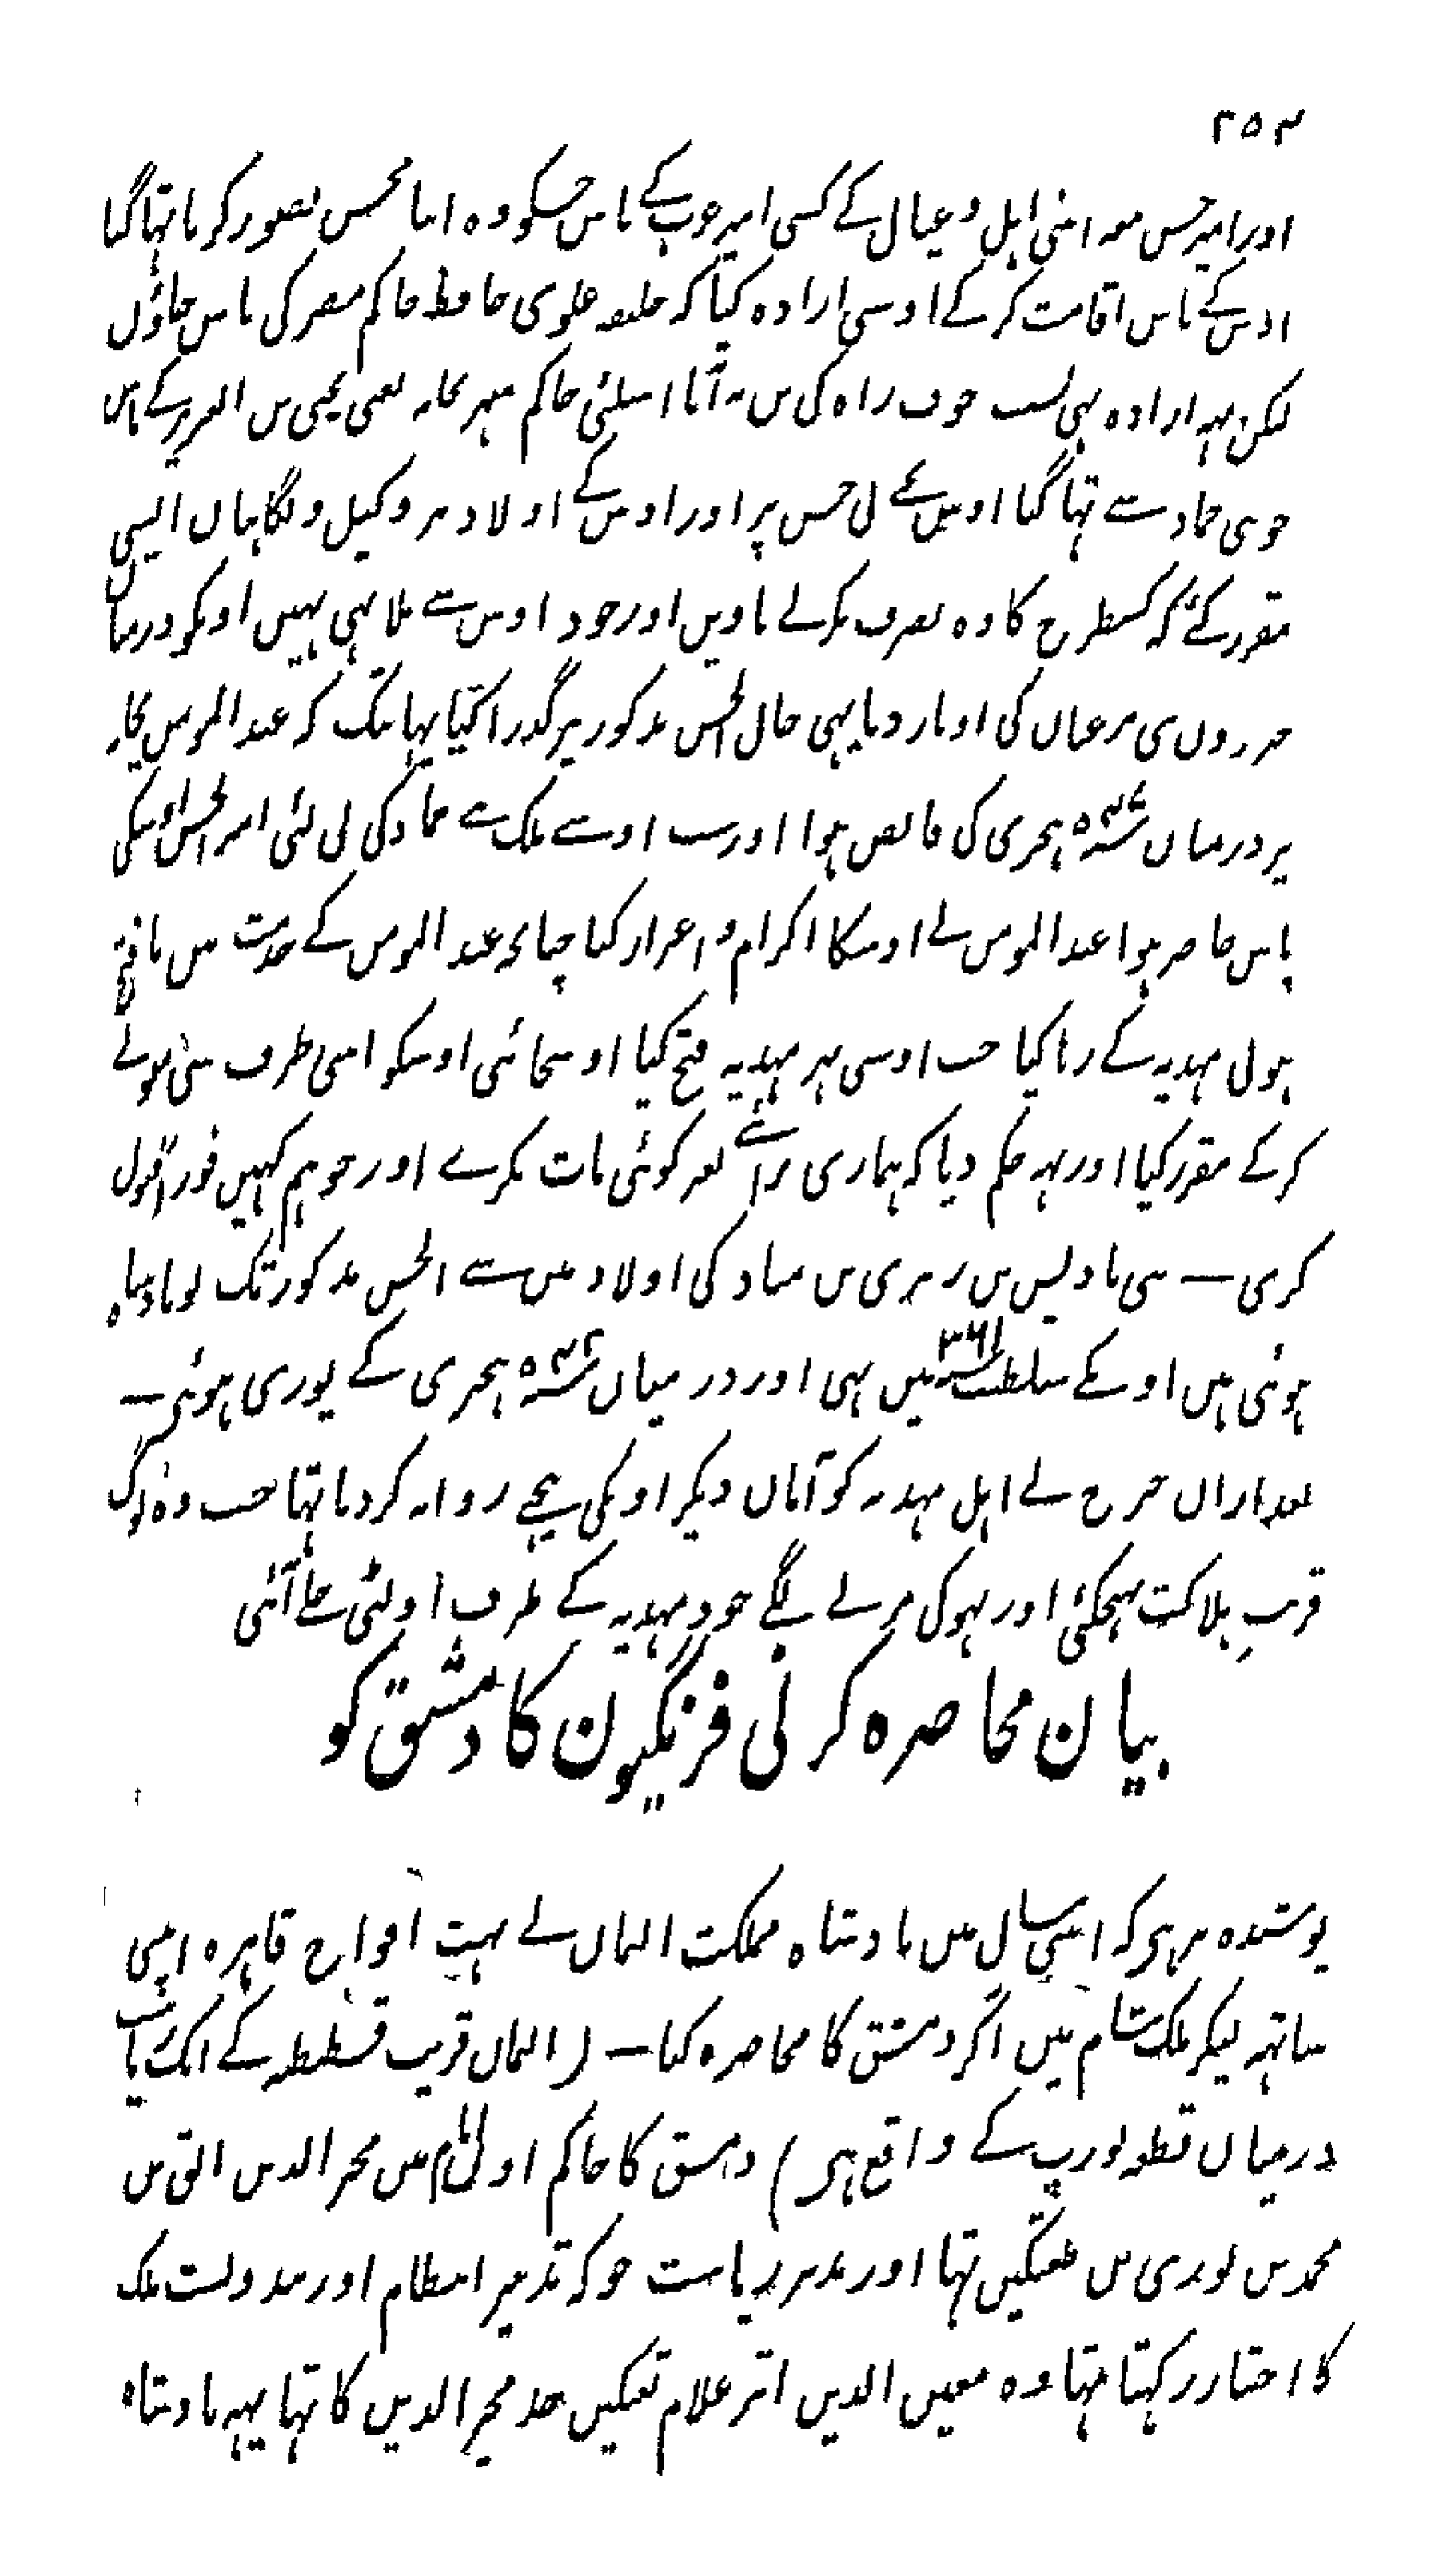 ۲۵۴
اور امیر حسن معہ اپنی اہل و عیال کے کسی امیر عرب کے پاس جسکو وہ اپنا محسن تصور کرتا تہا گیا
اوس کے پاس اقامت کر کے اوسی ارادہ کیا کہ خلیفہ علوی حافظ حاکم مصر کی پاس جاؤں
لیکن یہہ ارادہ بہی بسبب خوف راہ کی بن نہ آیا اسلئی حاکم شہر بجایہ یعنی یحیی بن العزیز کے پاس
جو بنی حماد سے تہا گیا اوس یحیی نی حسن پر اور اوس کے اولاد پر وکیل و نگاہبان ایسی
مقرر کئے کہ کسطرح کا وہ تصرف نکرنے پاویں اور خود اوس سے ملا بہی نہیں اونکو درمیان
جزیروں بنی مزغنان کی اوتار دیا یہی حال الحسن مذکور پر گذرا کیا یہانتک کہ عبد المومن بجایہ
پر درمیان سنہ ۵۴۷ ہجری کی قابض ہوا اور سب اوسے ملک بنے حماد کی لی لئی امیر الحسن اوسکی
پاس حاضر ہوا عبد المومن نے اوسکا اکرام و اعزاز کیا چنانچہ عبد المومن کے خدمت میں تا فتح
ہونی مہدیہ کے رہا کیا جب اوسی شہر مہدیہ فتح کیا اوسجائی اوسکو اپنی طرف سی متولے
کر کے مقرر کیا اور یہہ حکم دیا کہ ہماری رائے بغیر کوئی بات نکرے اور جو ہم کہیں فوراً قبول
کری — بنی بادیس بن زیری بن مناد کی اولاد میں سے الحسن مذکور تک نو بادشاہ
ہوئی ہیں اونکے سلطنت سنہ ۳۶۱ میں بہی اور درمیان سنہ ۵۴۳ ہجری کے پوری ہوئی —
بعد ازاں جرج نے اہل مہدیہ کو امان دیکر اونکی پیچے روانہ کر دیا تہا جب وہ لوگ
قریب ہلاکت پہنچگئی اور بہوکی مرنے لگے خود مہدیہ کے طرف اولٹی چلے آئی
بیان محاصرہ کرنی فرنگیون کا دمشق کو
پوشیدہ نرہی کہ اسی سال میں بادشاہ مملکت المان نے بہت افواج قاہرہ اپنی
ساتہہ لیکر ملک شام میں آکر دمشق کا محاصرہ کیا — ( المان قریب قسطنطنیہ کے ایک ریاست
درمیان قطعہ یورپ کے واقع ہی ) دمشق کا حاکم اون ایام میں مجیر الدین ابق بن
محمد بن بوری بن طغتکیں تہا اور مدبر ریاست جو کہ تدبیر انتظام اور بندوبست ملک
کا اختیار رکہتا تہا وہ معین الدین انر غلام تغتکیں جد مجیر الدین کا تہا یہہ بادشاہ